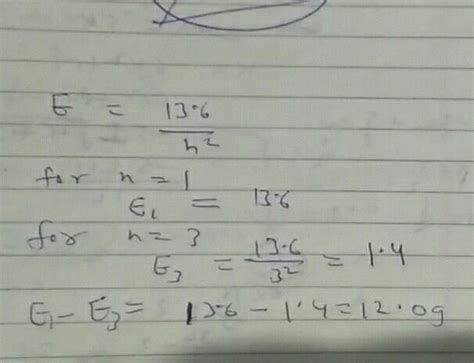 E = 13.6 / n²
for n = 1
E₁ = 13.6
for n = 3
E₃ = 13.6 / 3² = 1.4
E₁ - E₃ = 13.6 - 1.4 = 12.09